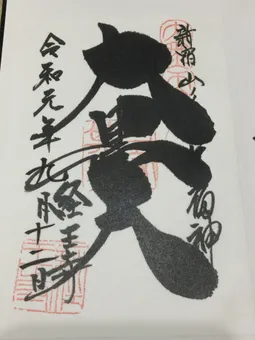 新宿山
福神
大黒天
経王寺
令和元年九月十二日